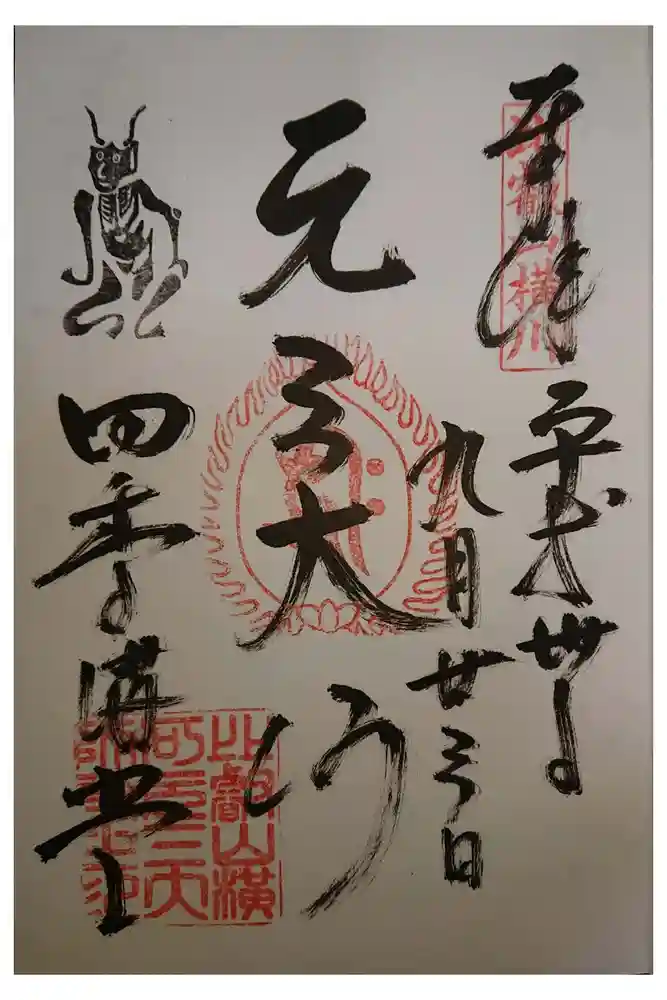 奉拝
比叡山横川
平成卅年
九月廿三日
元三大師
四季講堂
比叡山横
川元三大